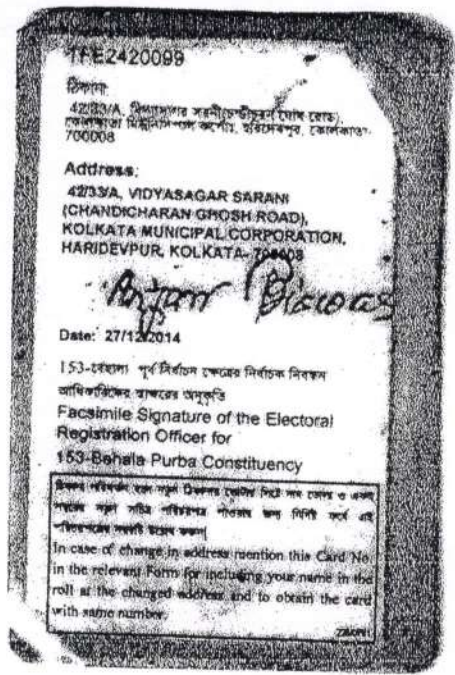 TFE2420099
ঠিকানা:
42/33/A, বিদ্যাসাগর সরনী(চন্ডীচরন ঘোষ রোড),
কোলকাতা মিউনিসিপাল কর্পোঃ, হরিদেবপুর, কোলকাতা-
700008
Address:
42/33/A, VIDYASAGAR SARANI
(CHANDICHARAN GHOSH ROAD),
KOLKATA MUNICIPAL CORPORATION,
HARIDEVPUR, KOLKATA- 700008
Anjan Biswas
Date: 27/12/2014
153-বেহালা পূর্ব নির্বাচন ক্ষেত্রের নির্বাচক নিবন্ধন
আধিকারিকের স্বাক্ষরের অনুকৃতি
Facsimile Signature of the Electoral
Registration Officer for
153-Behala Purba Constituency
ঠিকানা পরিবর্তন হলে নতুন ঠিকানায় ভোটার লিস্টে নাম তোলা ও একই
নম্বরের নতুন সচিত্র পরিচয়পত্র পাওয়ার জন্য নির্দিষ্ট ফর্মে এই
পরিচয়পত্রের নম্বরটি উল্লেখ করুন
In case of change in address mention this Card No.
in the relevant Form for including your name in the
roll at the changed address and to obtain the card
with same number.